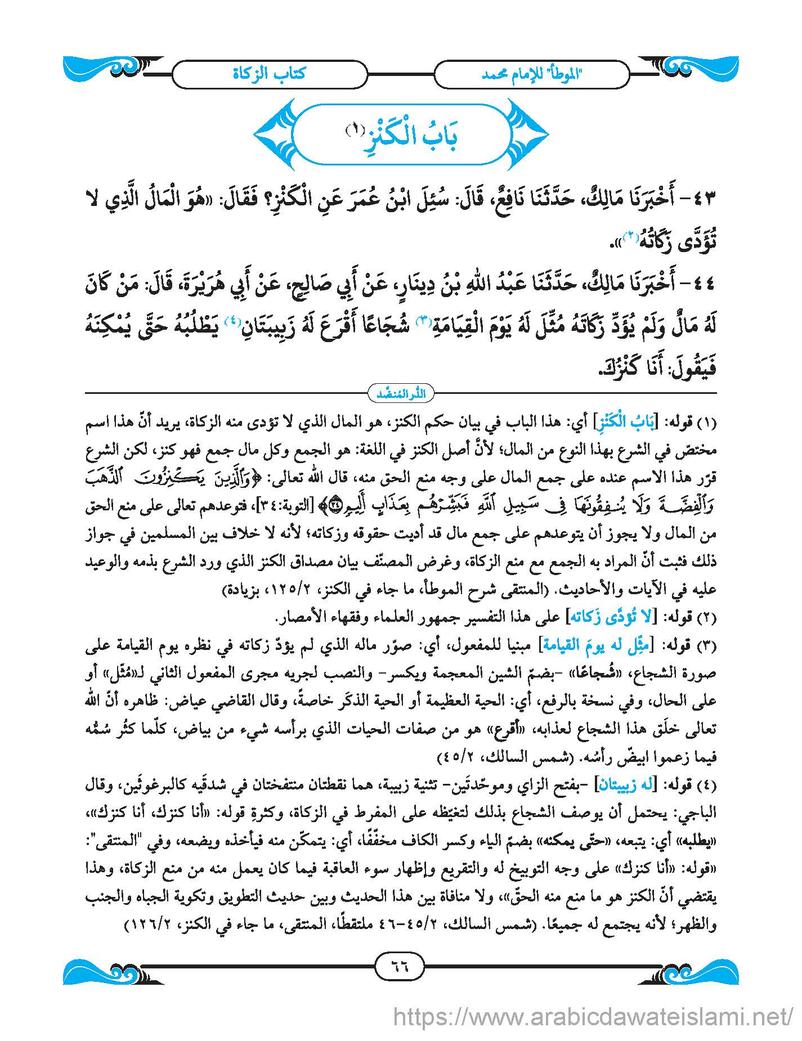 "الموطأ" للإمام محمد
كتاب الزكاة
بَابُ الْكَنْزِ(١)
٤٣- أَخْبَرَنَا مَالِكٌ، حَدَّثَنَا نَافِعٌ، قَالَ: سُئِلَ ابْنُ عُمَرَ عَنِ الْكَنْزِ؟ فَقَالَ: «هُوَ الْمَالُ الَّذِي لا
تُؤَدَّى زَكَاتُهُ(٢)».
٤٤- أَخْبَرَنَا مَالِكٌ، حَدَّثَنَا عَبْدُ اللهِ بْنُ دِينَارٍ، عَنْ أَبِي صَالِحٍ، عَنْ أَبِي هُرَيْرَةَ، قَالَ: مَنْ كَانَ
لَهُ مَالٌ وَلَمْ يُؤَدِّ زَكَاتَهُ مُثِّلَ لَهُ يَوْمَ الْقِيَامَةِ(٣) شُجَاعًا أَقْرَعَ لَهُ زَبِيبَتَانِ(٤) يَطْلُبُهُ حَتَّى يُمْكِنَهُ
فَيَقُولَ: أَنَا كَنْزُكَ.
الدُّر المُنضَّد
(١) قوله: [بَابُ الْكَنْزِ] أي: هذا الباب في بيان حكم الكنز، هو المال الذي لا تؤدى منه الزكاة، يريد أنّ هذا اسم
مختصّ في الشرع بهذا النوع من المال؛ لأنَّ أصل الكنز في اللغة: هو الجمع وكل مال جمع فهو كنز، لكن الشرع
قرّر هذا الاسم عنده على جمع المال على وجه منع الحق منه، قال الله تعالى: ﴿وَٱلَّذِينَ يَكۡنِزُونَ ٱلذَّهَبَ
وَٱلۡفِضَّةَ وَلَا يُنفِقُونَهَا فِي سَبِيلِ ٱللَّهِ فَبَشِّرۡهُم بِعَذَابٍ أَلِيمٖ ٣٤﴾[التوبة:٣٤]، فتوعدهم تعالى على منع الحق
من المال ولا يجوز أن يتوعدهم على جمع مال قد أديت حقوقه وزكاته؛ لأنه لا خلاف بين المسلمين في جواز
ذلك فثبت أنّ المراد به الجمع مع منع الزكاة، وغرض المصنّف بيان مصداق الكنز الذي ورد الشرع بذمه والوعيد
عليه في الآيات والأحاديث. (المنتقى شرح الموطأ، ما جاء في الكنز، ١٢٥/٢، بزيادة)
(٢) قوله: [لا تُؤدَّى زَكاته] على هذا التفسير جمهور العلماء وفقهاء الأمصار.
(٣) قوله: [مثِّل له يومَ القيامة] مبنيا للمفعول، أي: صوِّر ماله الذي لم يؤدّ زكاته في نظره يوم القيامة على
صورة الشجاع، «شُجاعًا» -بضمّ الشين المعجمة ويكسر- والنصب لجريه مجرى المفعول الثاني لـ«مُثّل» أو
على الحال، وفي نسخة بالرفع، أي: الحية العظيمة أو الحية الذكَر خاصةً، وقال القاضي عياض: ظاهره أنّ الله
تعالى خلَق هذا الشجاع لعذابه، «أقرع» هو من صفات الحيات الذي برأسه شيء من بياض، كلّما كثُر سُمُّه
فيما زعموا ابيضّ رأسُه. (شمس السالك، ٤٥/٢)
(٤) قوله: [له زبيبتان] -بفتح الزاي وموحّدتَين- تثنية زبيبة، هما نقطتان منتفختان في شدقَيه كالبرغوثَين، وقال
الباجي: يحتمل أن يوصف الشجاع بذلك لتغيّظه على المفرط في الزكاة، وكثرةِ قوله: «أنا كنزك، أنا كنزك»،
«يطلبه» أي: يتبعه، «حتّى يمكنه» بضمّ الياء وكسر الكاف مخفّفًا، أي: يتمكّن منه فيأخذه ويضعه، وفي "المنتقى":
«قوله: «أنا كنزك» على وجه التوبيخ له والتقريع وإظهار سوء العاقبة فيما كان يعمل منه من منع الزكاة، وهذا
يقتضي أنّ الكنز هو ما منع منه الحقّ»، ولا منافاة بين هذا الحديث وبين حديث التطويق وتكوية الجباه والجنب
والظهر؛ لأنه يجتمع له جميعًا. (شمس السالك، ٤٥/٢-٤٦ ملتقطًا، المنتقى، ما جاء في الكنز، ١٢٦/٢)
٦٦
https://www.arabicdawateislami.net/